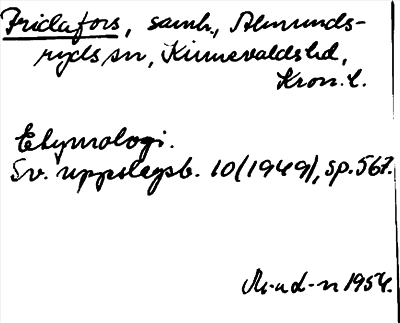 Fridafors, samh., Almunds-
ryds sn, Kinnevaldshd,
Kron. l.
Etymologi.
Sv. uppslagsb. 10 (1949), sp. 567.
M-d-n 1954.